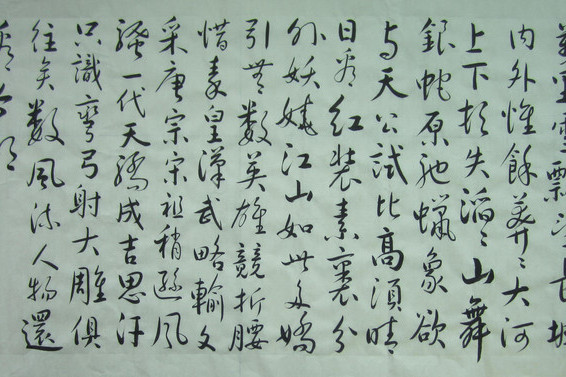 里雪飄望長城
内外惟餘莽〻大河
上下頓失滔〻山舞
銀蛇原馳蠟象欲
与天公試比高須晴
日看紅裝素裹分
外妖嬈江山如此多嬌
引無數英雄競折腰
惜秦皇漢武略輸文
采唐宗宋祖稍遜風
騷一代天驕成吉思汗
只識彎弓射大雕俱
往矣數風流人物還
看今朝